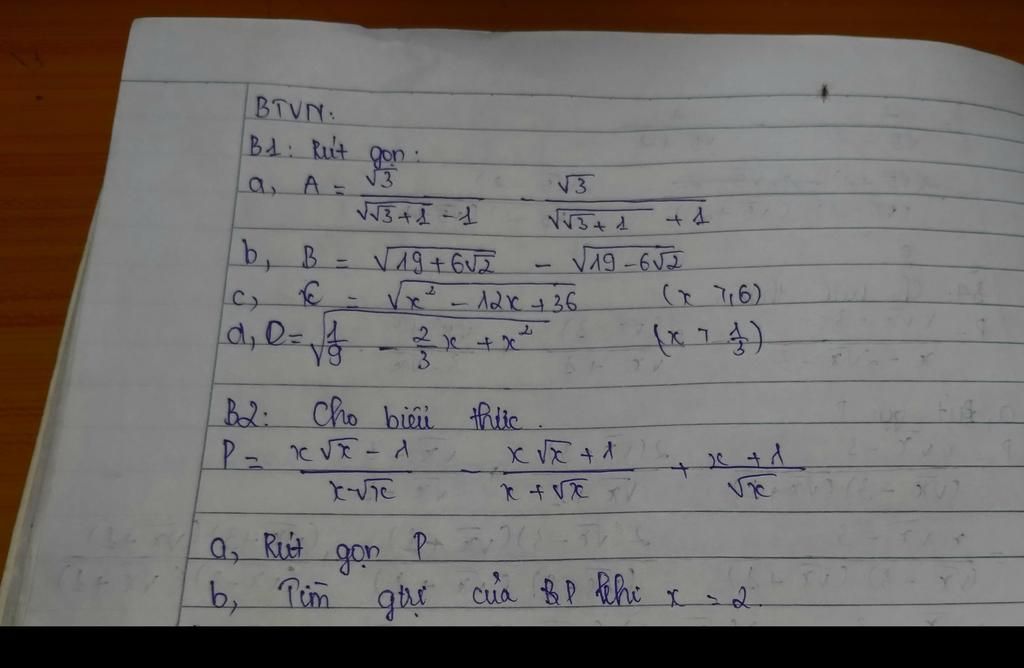 BTVN:
B1: Rút gọn:
a, A = √3/(√(√3+1) - 1) - √3/(√(√3+1) + 1)
b, B = √(19+6√2) - √(19-6√2)
c, C = √(x² - 12x + 36) (x ⩾ 6)
d, D = √(1/9 - 2/3x + x²) (x > 1/3)
B2: Cho biểu thức.
P = (x√x - 1)/(x-√x) - (x√x + 1)/(x + √x) + (x + 1)/√x
a, Rút gọn P
b, Tìm gtrị của P khi x = 2.